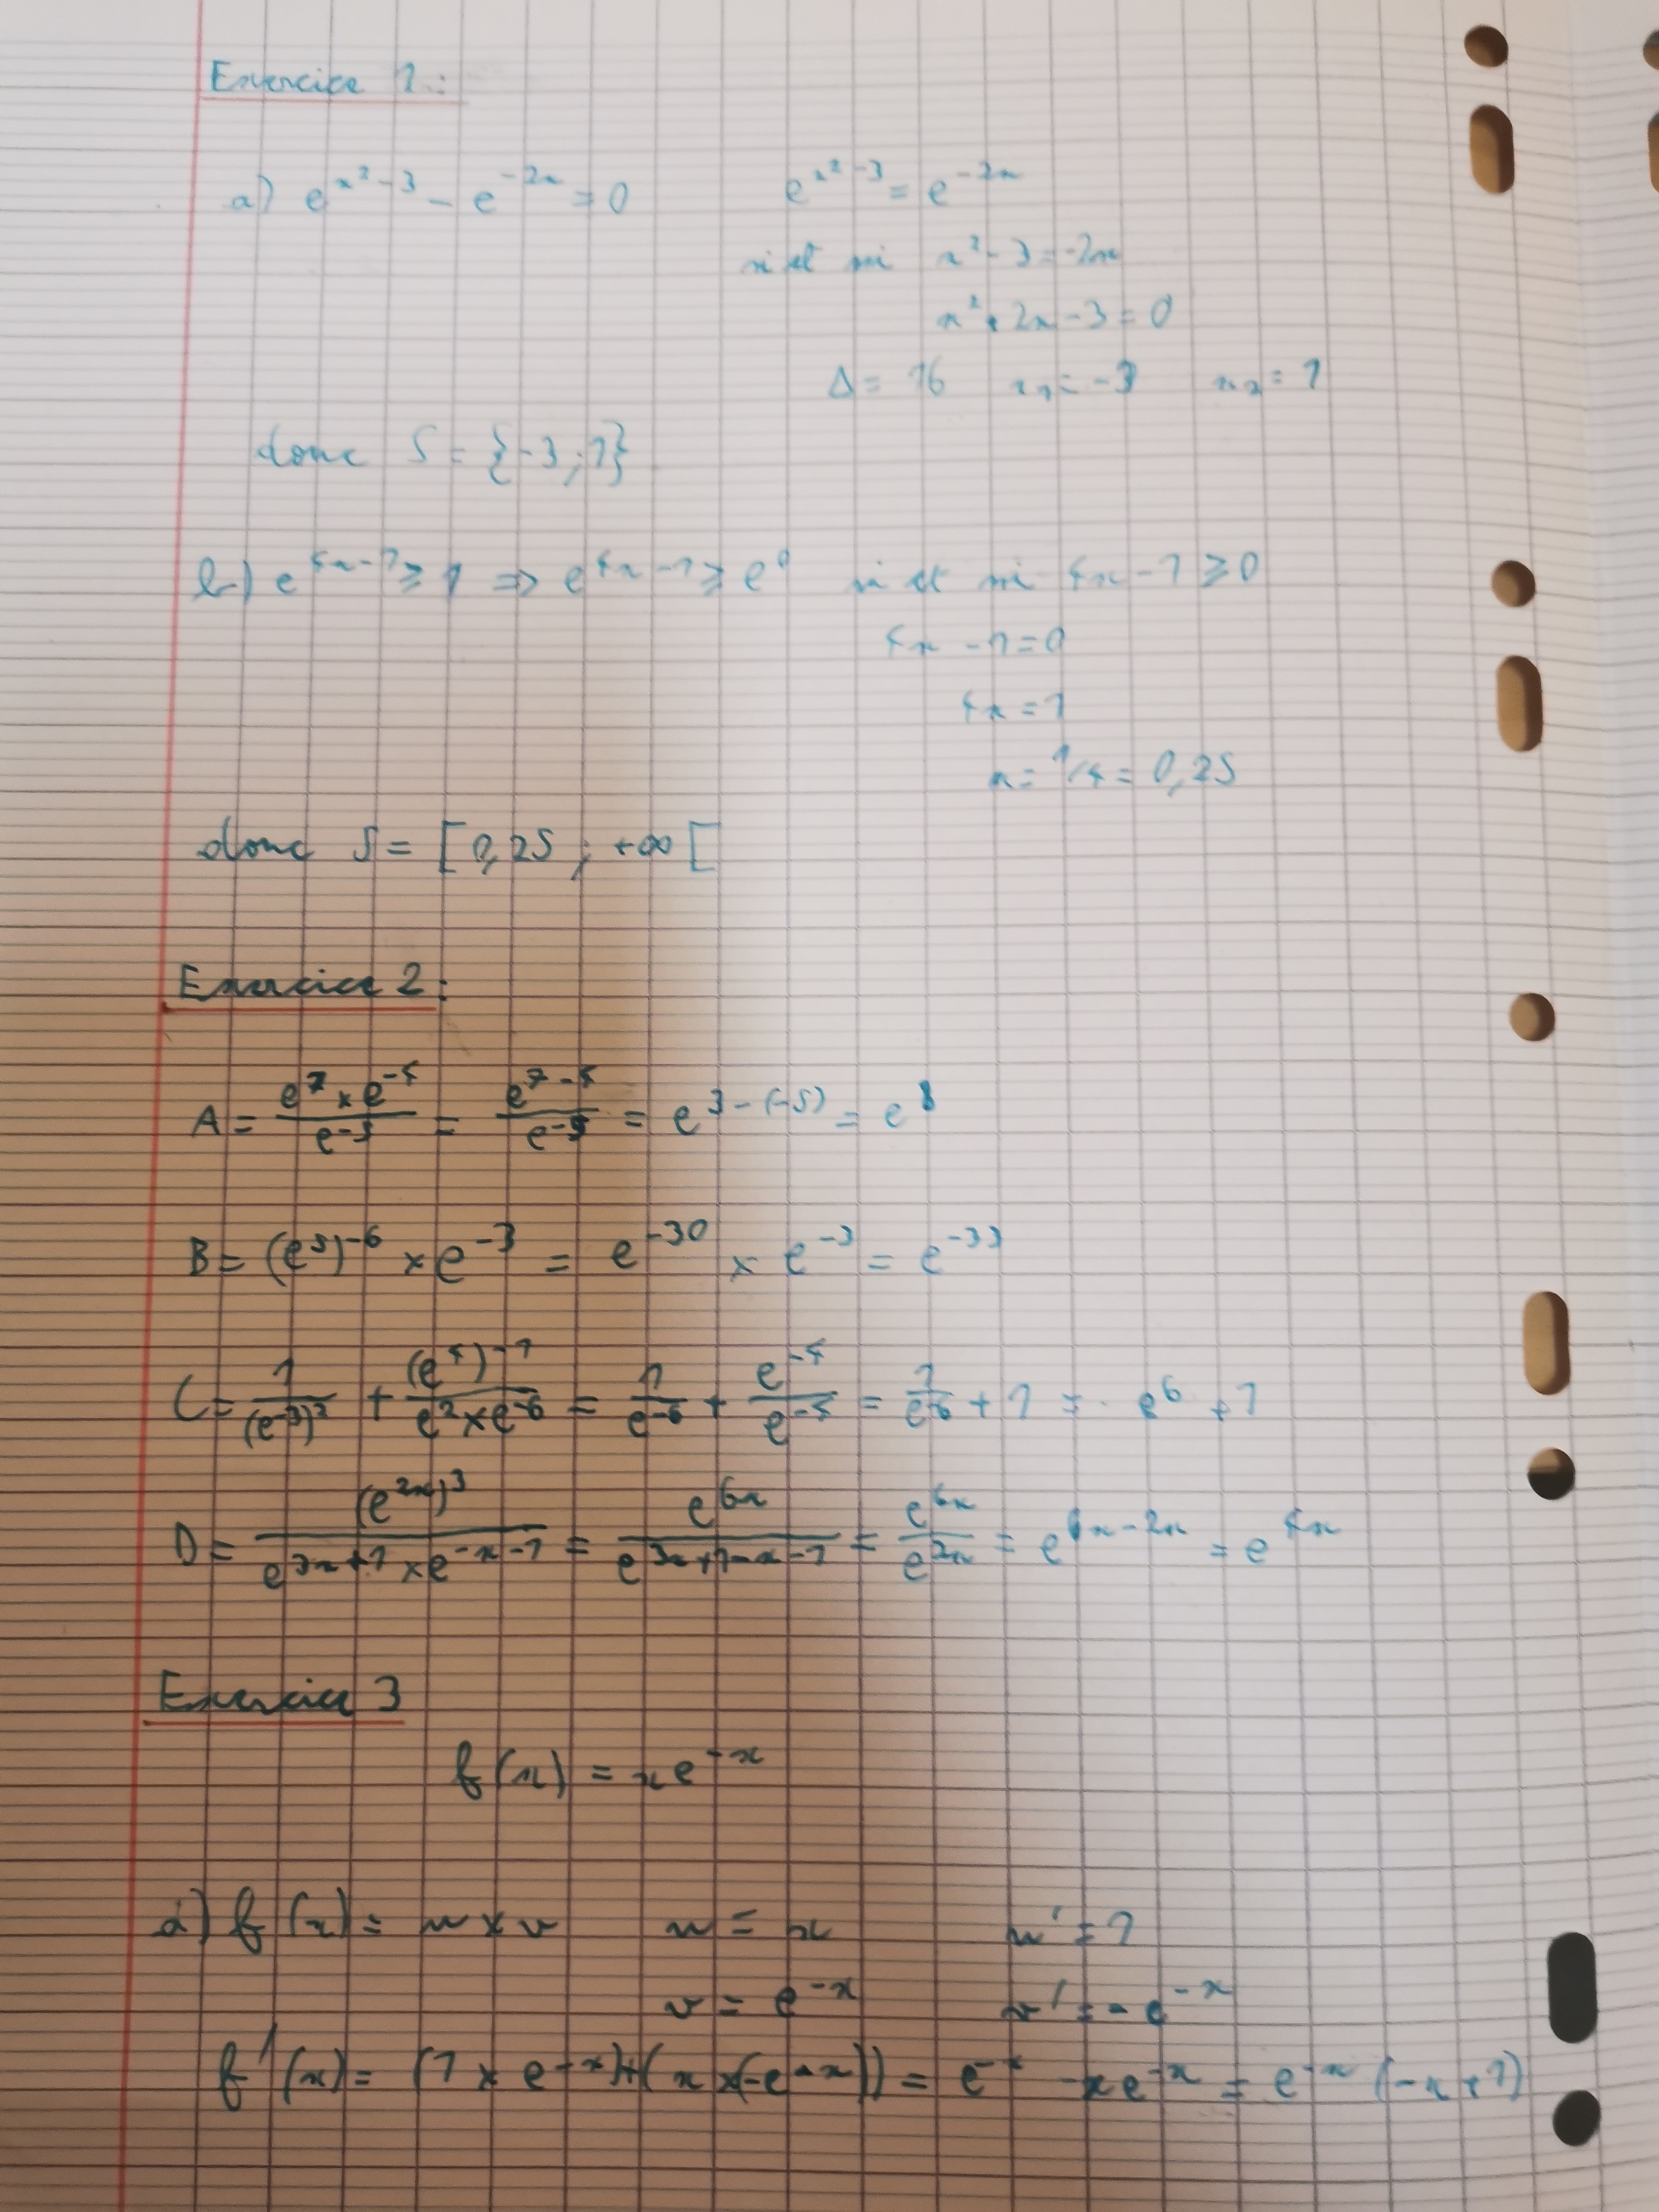 Exercice 1 :
a) e^{x²-3} - e^{-2x} = 0    e^{x²-3} = e^{-2x}
si et si x² - 3 = -2x
x² + 2x - 3 = 0
Δ = 16    x₁ = -3    x₂ = 1
donc S = {-3 ; 1}
b) e^{4x-1} ≥ 1 ⇒ e^{4x-1} ≥ e^0    si et si 4x - 1 ≥ 0
4x - 1 = 0
4x = 1
x = 1/4 = 0,25
donc S = [0,25 ; +∞[
Exercice 2 :
A = (e^7 × e^{-4})/(e^{-5}) = (e^{7-4})/(e^{-5}) = e^{3-(-5)} = e^8
B = (e^5)^{-6} × e^{-3} = e^{-30} × e^{-3} = e^{-33}
C = 1/(e^{-3})² + (e^4)^{-1}/(e² × e^{-6}) = 1/e^{-6} + e^{-4}/e^{-4} = 1/e^{-6} + 1 = e^6 + 1
D = (e^{2x})³/(e^{3x+1} × e^{-x-1}) = e^{6x}/e^{3x+1-x-1} = e^{6x}/e^{2x} = e^{6x-2x} = e^{4x}
Exercice 3
f(x) = xe^{-x}
a) f(x) = u × v    u = x    u' = 1
v = e^{-x}    v' = -e^{-x}
f'(x) = (1 × e^{-x}) + (x × (-e^{-x})) = e^{-x} - xe^{-x} = e^{-x}(-x+1)